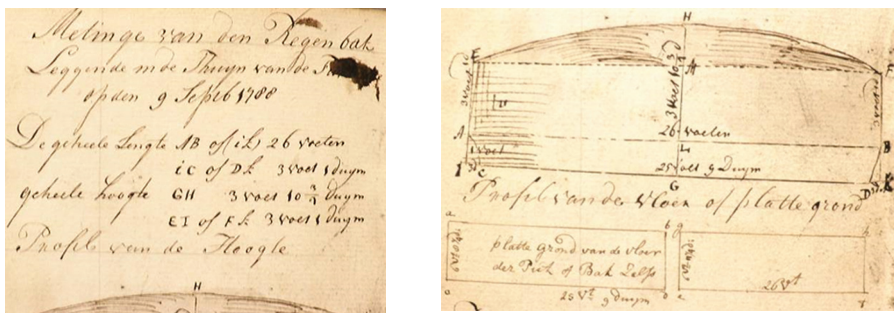 Metinge van den Regenbak
Leggende in de Thuyn van de
op den 9 Septb 1788
De geheele Lengte AB of (ik) 26 voeten
iC of Dk 3 voet 1 duym
geheele hoogte GH 3 voet 10 duym
EI of Fk 3 voet 1 duym
Profil van de Hoogte
H
H
3 voet
3 voet 10
A
26 voeten
B
1 voet
L
I
C
25 voet 9 Duym
G
D
K
Profil van de vloer of platte grond
b
g
h
platte grond van de vloer
der Put of Bak Zelfs
25 Vt 9 duym
26 Vt
e